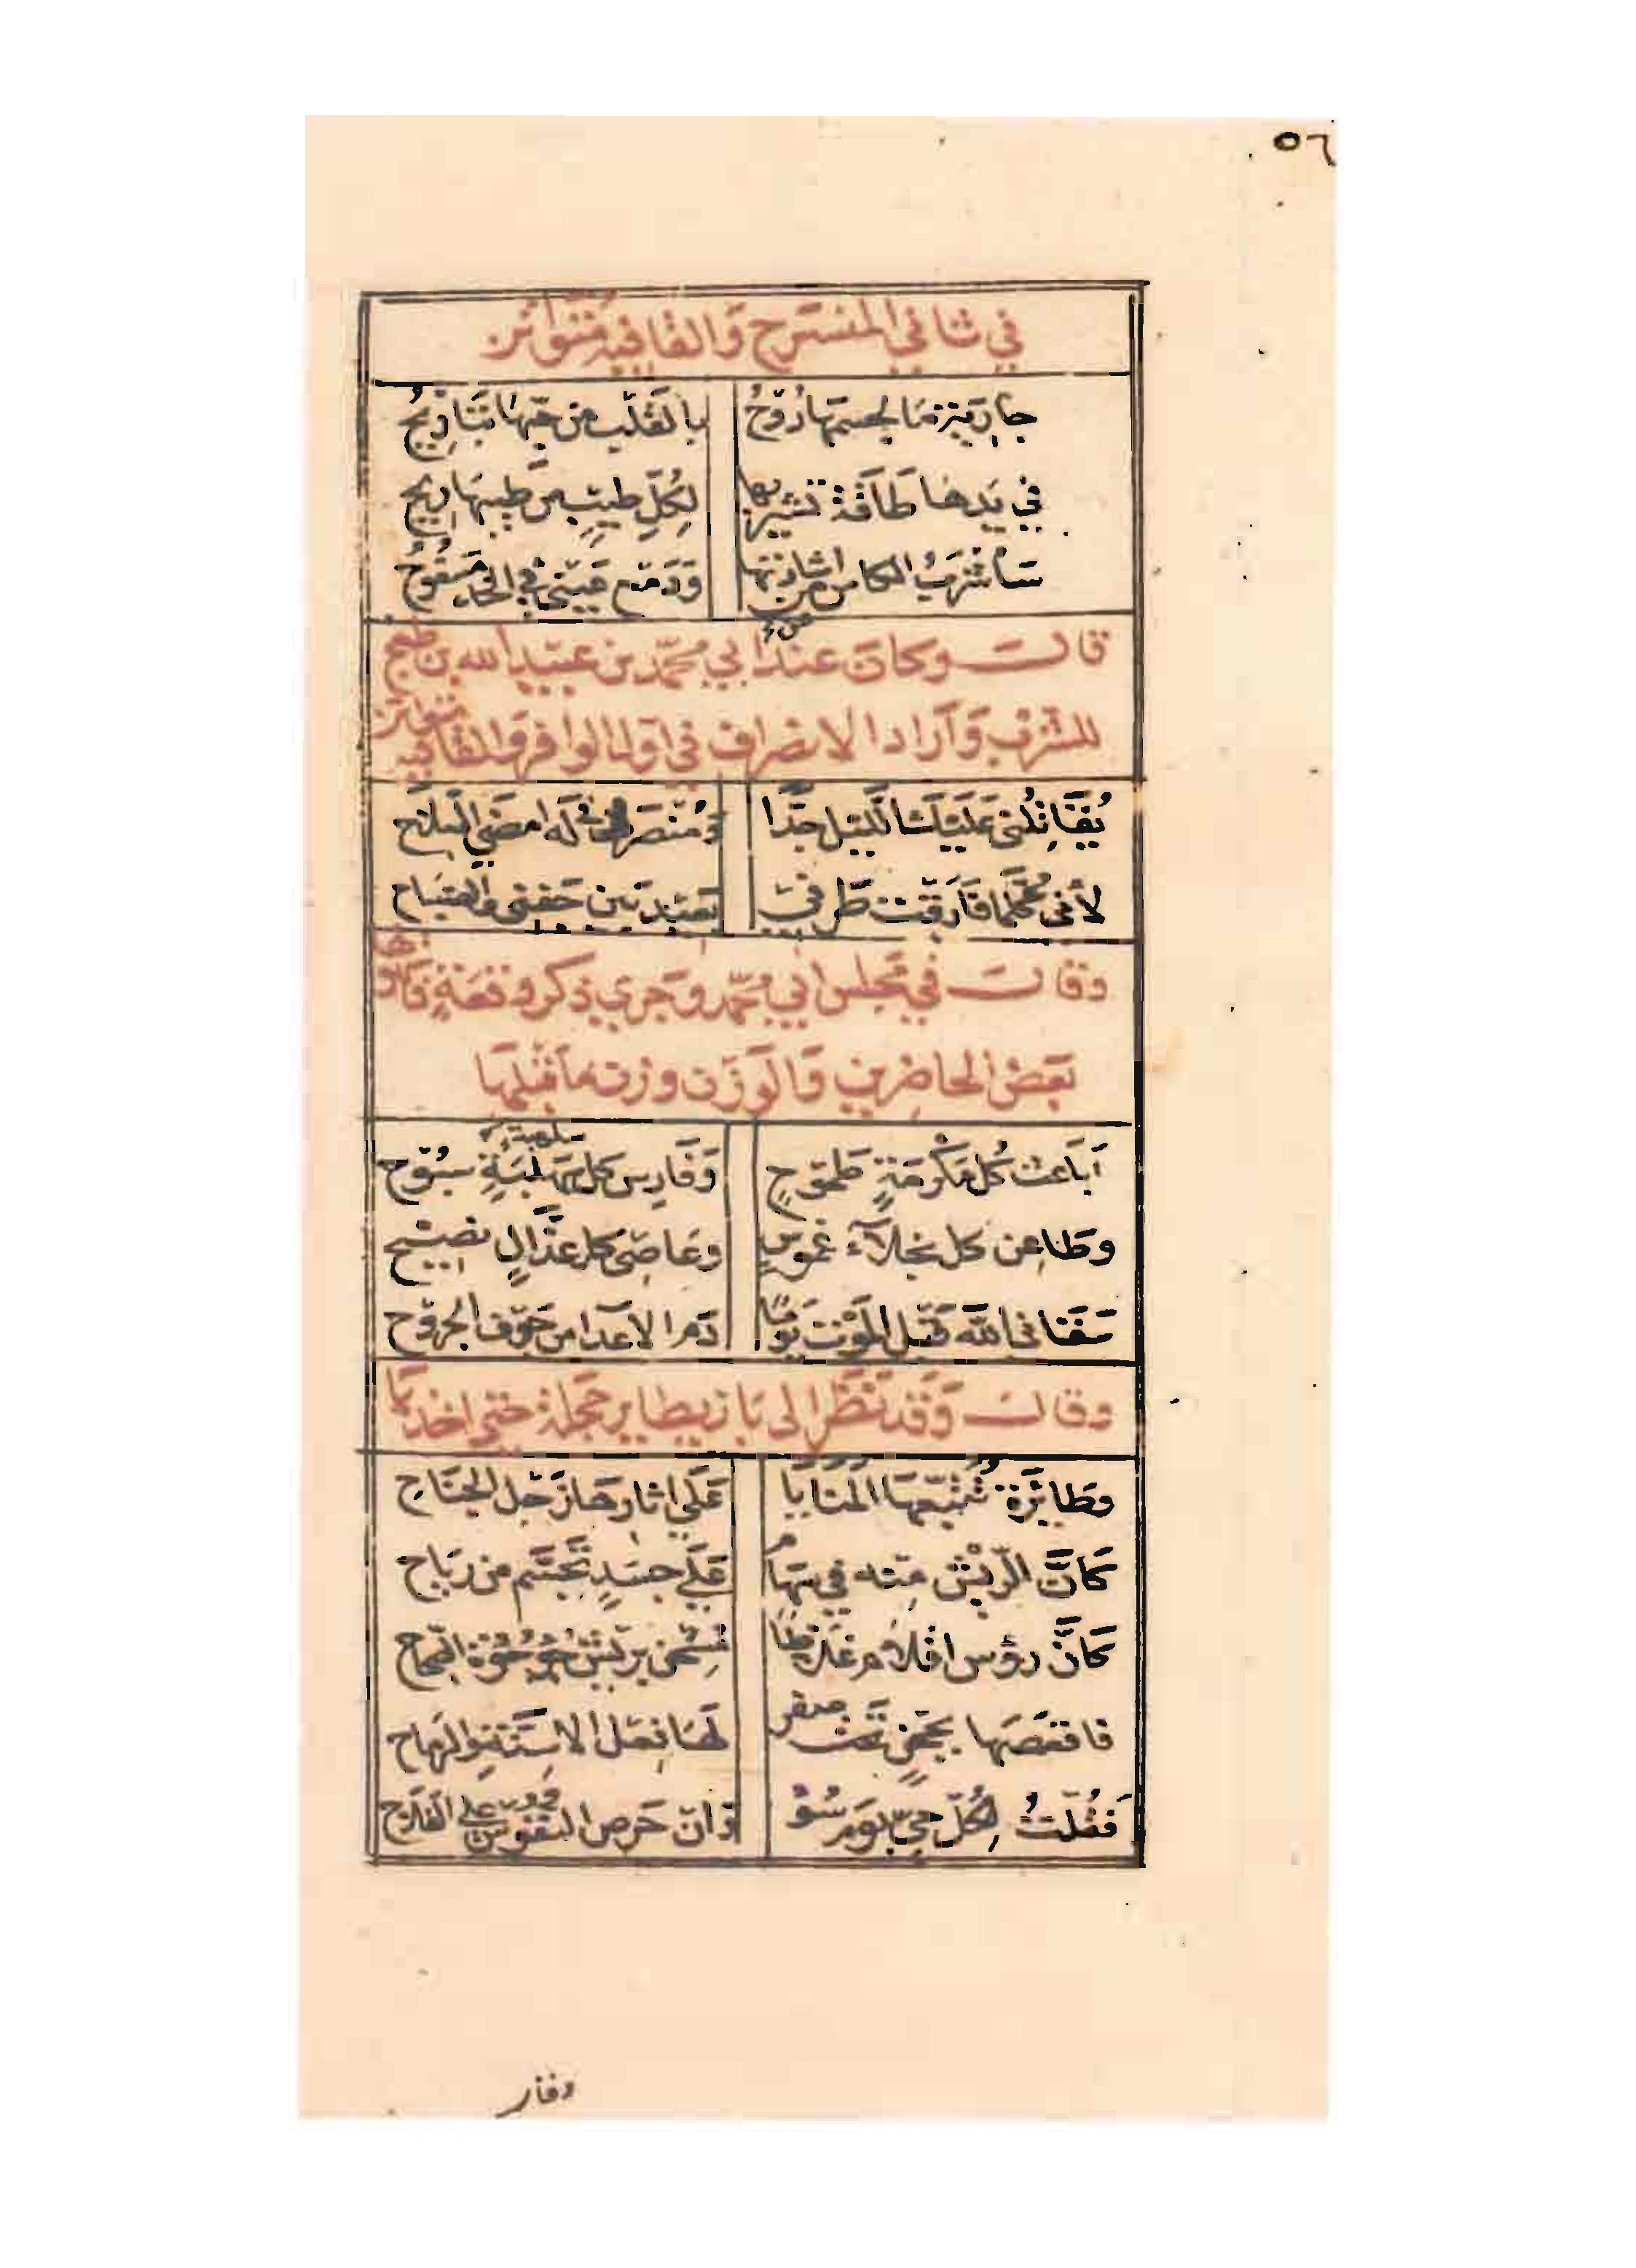 ٥٦
في ثاني المنسرح والقافية متواتر
جارية ما لجسمها روح بالقلب من حبها تباريح
في يدها طاقة تشير بها لكل طيب من طيبها ريح
سأشرب الكاس من اشارتها ودمع عيني في الخد مسفوح
قال وكان عند ابي محمد بن عبيد الله بن طغج
للشرب وأراد الانصراف في اول الوافر والقافية متواتر
يقاتلني عليك الليل جدا ومنصرفي له امضى السلاح
لأني كلما فارقت طرفي بعيد بين جفني والصباح
وقال في مجلس ابي محمد وجرى ذكر وقعة
بعض الحاضرين والوزن وزن ما قبلها
أباعث كل مكرمة طموح وفارس كل سلهبة سبوح
وطاعن كل نجلاء غموس وعاصي كل عذال نصيح
سقاني الله قبل الموت يوما دم الاعدا من جوف الجروح
وقال وقد نظر الى باز يطاير حجلة حتى اخذها
وطائرة تتبعها المنايا على اثارها زجل الجناح
كان الريش منه في سهام على جسد تجسم من رياح
كأن رؤس اقلام غلاظا مسحن بريش جؤجؤه الصحاح
فاقعصها بحجن تحت صفر لها فعل الاسنة والرماح
فقلت لكل حي يوم سوء وان حرص النفوس على الفلاح
وقال